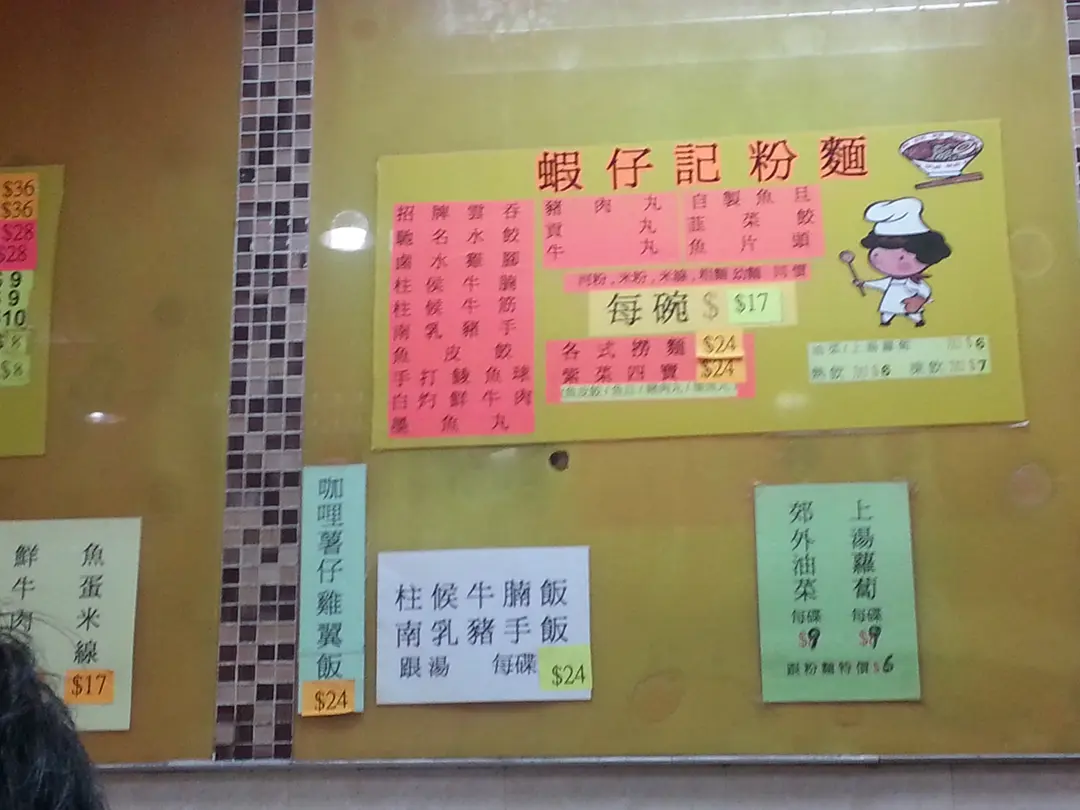 $36
$36
$28
$28
9
9
10
$8
$8
蝦仔記粉麵
招牌雲吞
馳名水餃
鹵水雞腳
柱侯牛腩
柱侯牛筋
南乳豬手
魚皮餃
手打鯪魚球
自灼鮮牛肉
墨魚丸
豬肉丸
貢丸
牛丸
自製魚旦
韮菜餃
魚片頭
河粉,米粉,米線,粗麵幼麵 同價
每碗$ $17
各式撈麵 $24
紫菜四寶 $24
油菜/上湯蘿蔔 加$6
熱飲 加$6 凍飲加$7
鮮牛肉
魚蛋米線
$17
咖哩薯仔雞翼飯
$24
柱候牛腩飯
南乳豬手飯
跟湯 每碟 $24
上湯蘿蔔 每碟 $9
郊外油菜 每碟 $9
跟粉麵特價$6